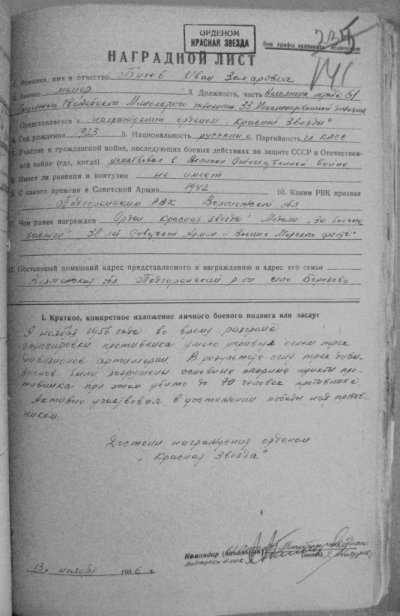 ОРДЕНОМ
КРАСНАЯ ЗВЕЗДА
Все графы заполнять полностью
НАГРАДНОЙ ЛИСТ
Фамилия, имя и отчество Иван Захарович
звание майор 3. Должность, часть Начальник штаба
Гвардейского Минометного 33 дивизии
Представляется к награждению орденом „Красная Звезда"
4. Год рождения 1923 5. Национальность русский 6. Партийность чл. КПСС
Участие в гражданской войне, последующих боевых действиях по защите СССР и Отечествен-
ной войне (где, когда) участвовал в Великой Отечественной войне
Имеет ли ранения и контузии не имеет
С какого времени в Советской Армии 1942 10. Каким РВК призван
Подгоренским РВК Воронежской обл
Чем ранее награжден Орден „Красная Звезда" Медали: „За боевые
заслуги" Советской Армии и Военно Морского флота"
Постоянный домашний адрес представляемого к награждению и адрес его семьи
Воронежская обл. Подгоренский р-он село
I. Краткое, конкретное изложение личного боевого подвига или заслуг
ноября 1956 года во время разгрома
группировки противника умело управлял огнем трех
дивизионов артиллерии. В результате огня трех диви-
зионов были разрушены основные опорные пункты про-
тивника при этом убито до 70 человек противника
Активно участвовал в достижении победы над против-
ником.
Достоин награждения орденом
„Красная Звезда"
Командир (начальник)
подполковник
13 ноября 1956 г.